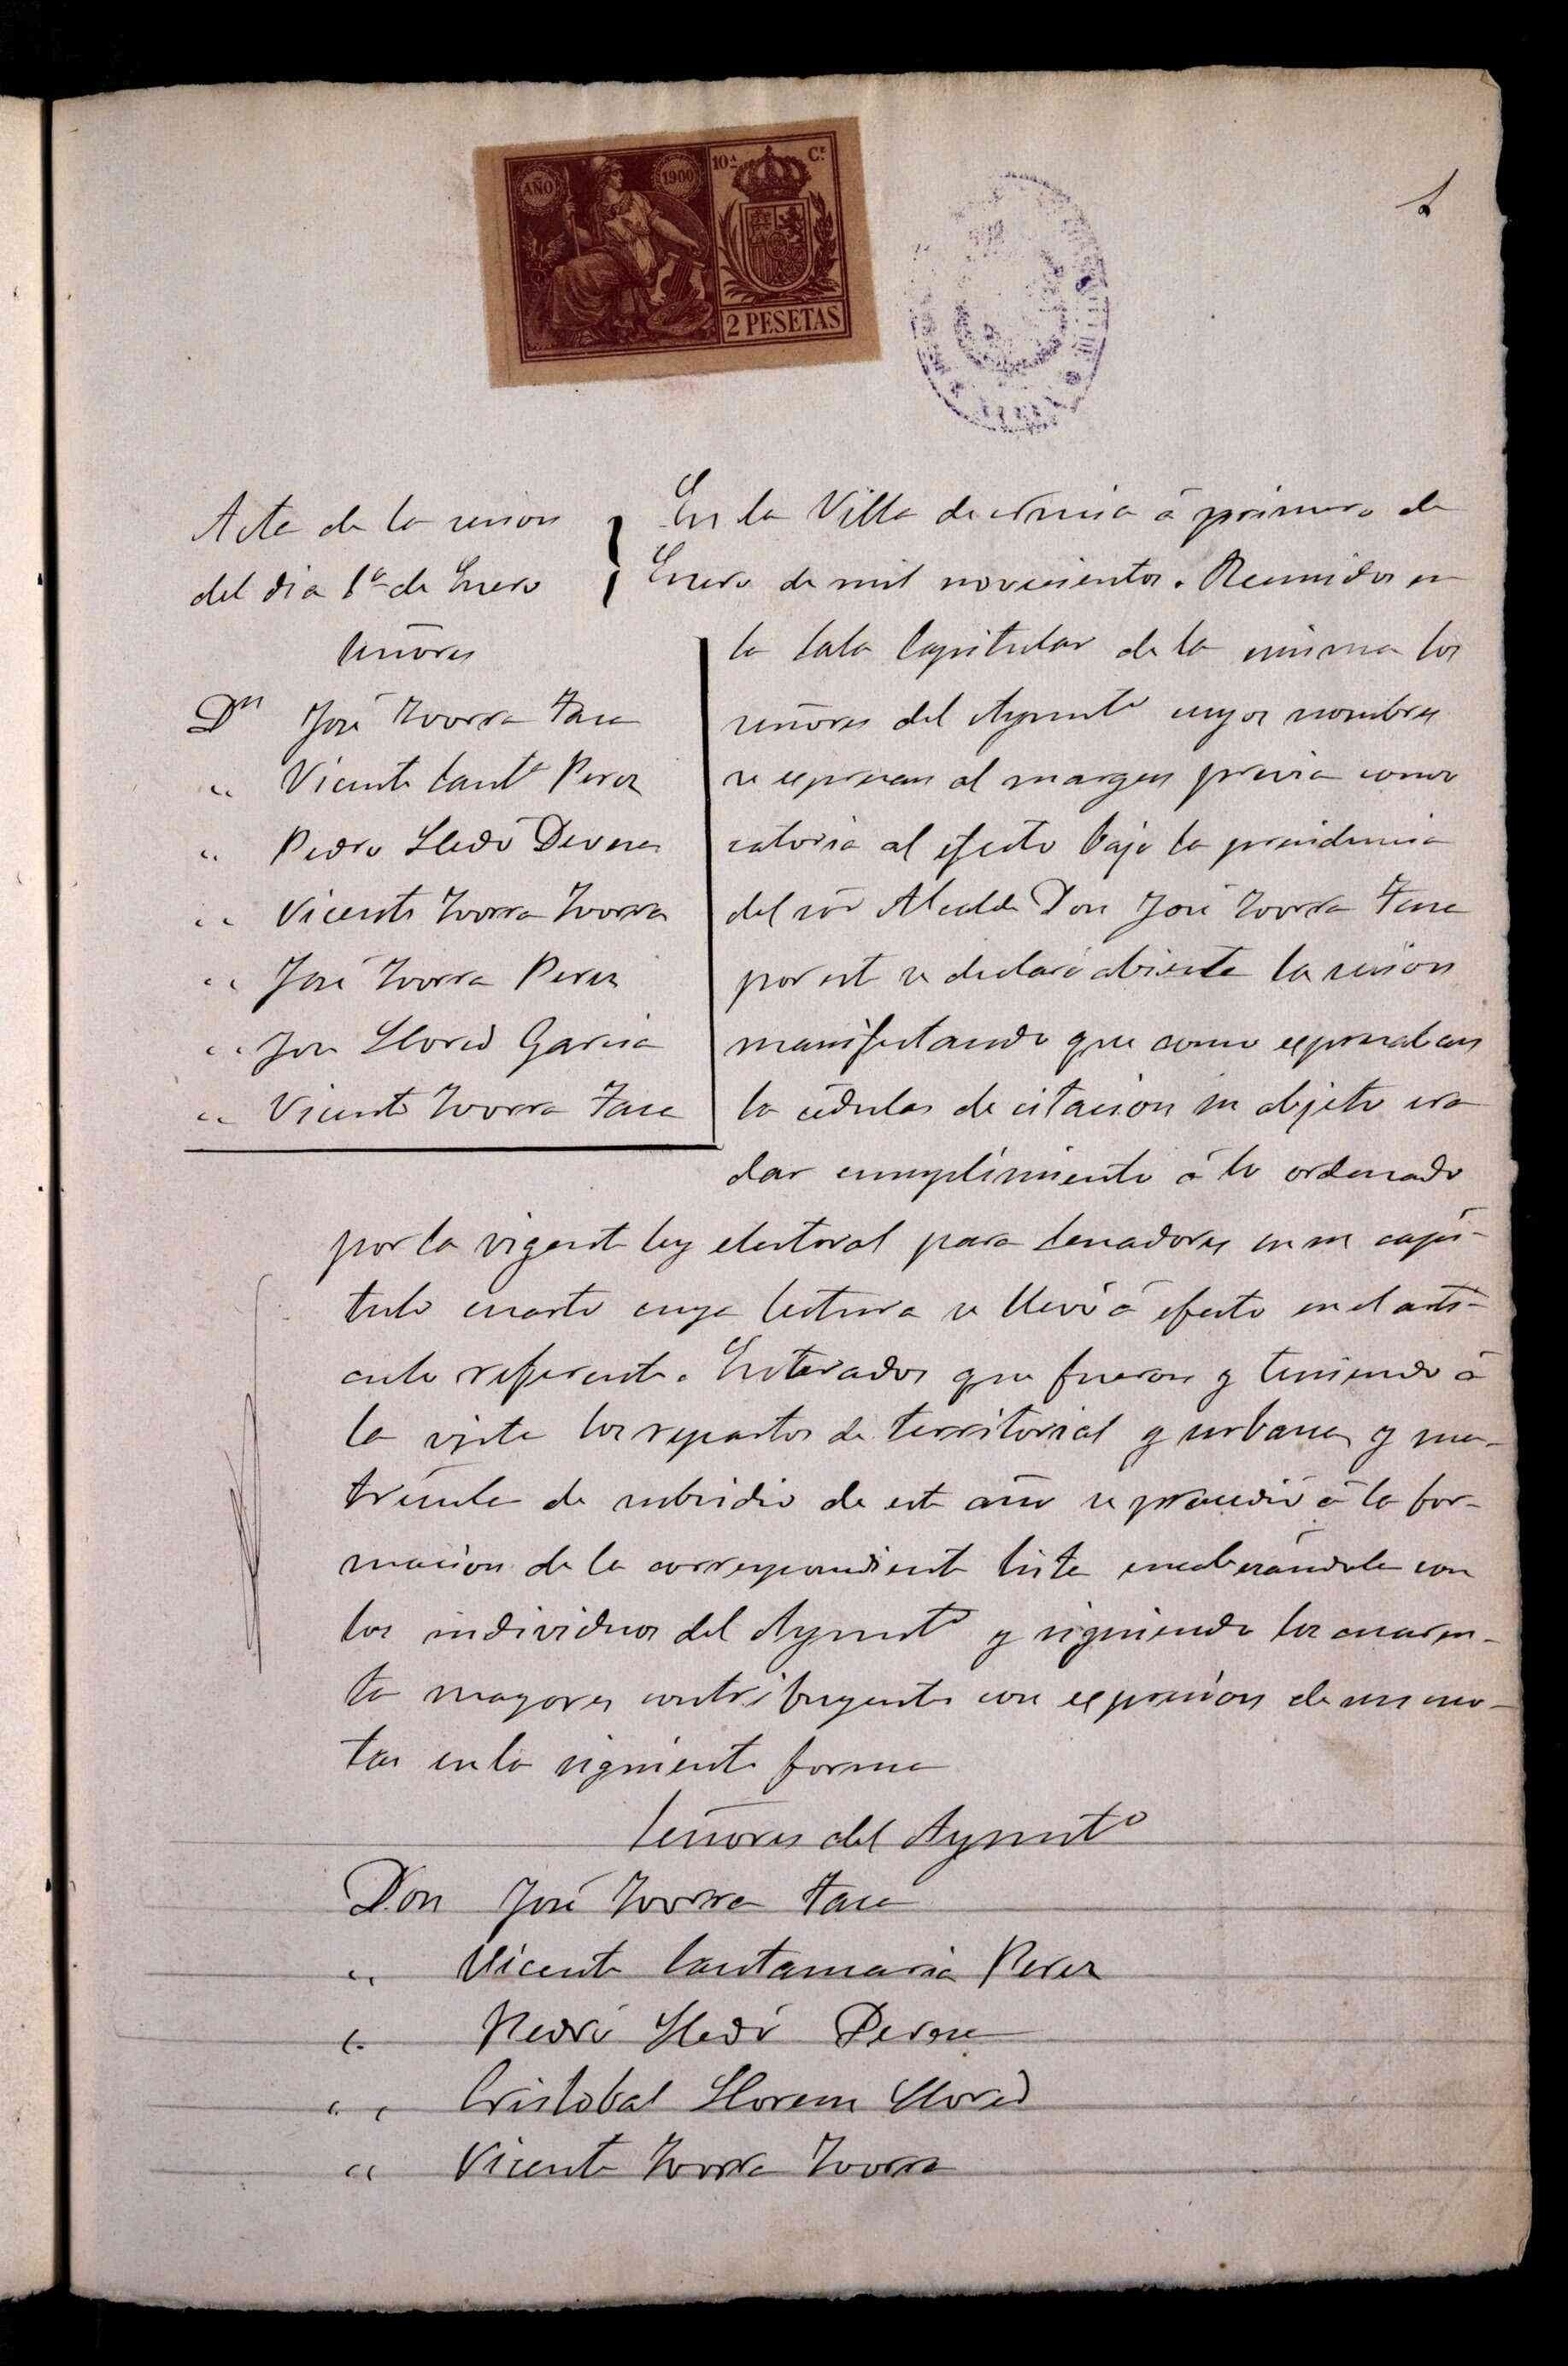 AÑO 1900 10ª Cº
2 PESETAS
1
Acta de la sesion
del dia 1º de Enero
Señores
Dn José Zorra
" Vicente Santª Perez
" Pedro Lledó Devesa
" Vicente Yvorra Yvorra
" José Yvorra Perez
" José Llored Garcia
" Vicente Yvorra
En la Villa de á primero de
Enero de mil novecientos. Reunidos en
la Sala Capitular de la misma los
señores del Aymtº cuyos nombres
se espresan al margen previa convo
catoria al efecto bajo la presidencia
del sór Alcalde Don José Yvorra
por este se declaró abierta la sesion
manifestando que como espresaban
la cédulas de citacion su objeto era
dar cumplimiento á lo ordenado
por la vigente ley electoral para Senadores en su capí-
tulo cuarto cuya lectura se llevó á efecto en el artí-
culo referente. Enterados que fueron y teniendo á
la vista los repartos de territorial y urbana y ma-
trícula de subsidio de este año se procedió á la for-
macion de la correspondiente lista encabezándola con
los individuos del Aymtº y siguiendo los cuaren-
ta mayores contribuyentes con espresion de sus cuo-
tas en la siguiente forma
Señores del Aymtº
Don José Yvorra
" Vicente Santamaria Perez
" Pedro Lledó Devesa
" Cristobal Llorens Llored
" Vicente Yvorra Yvorra